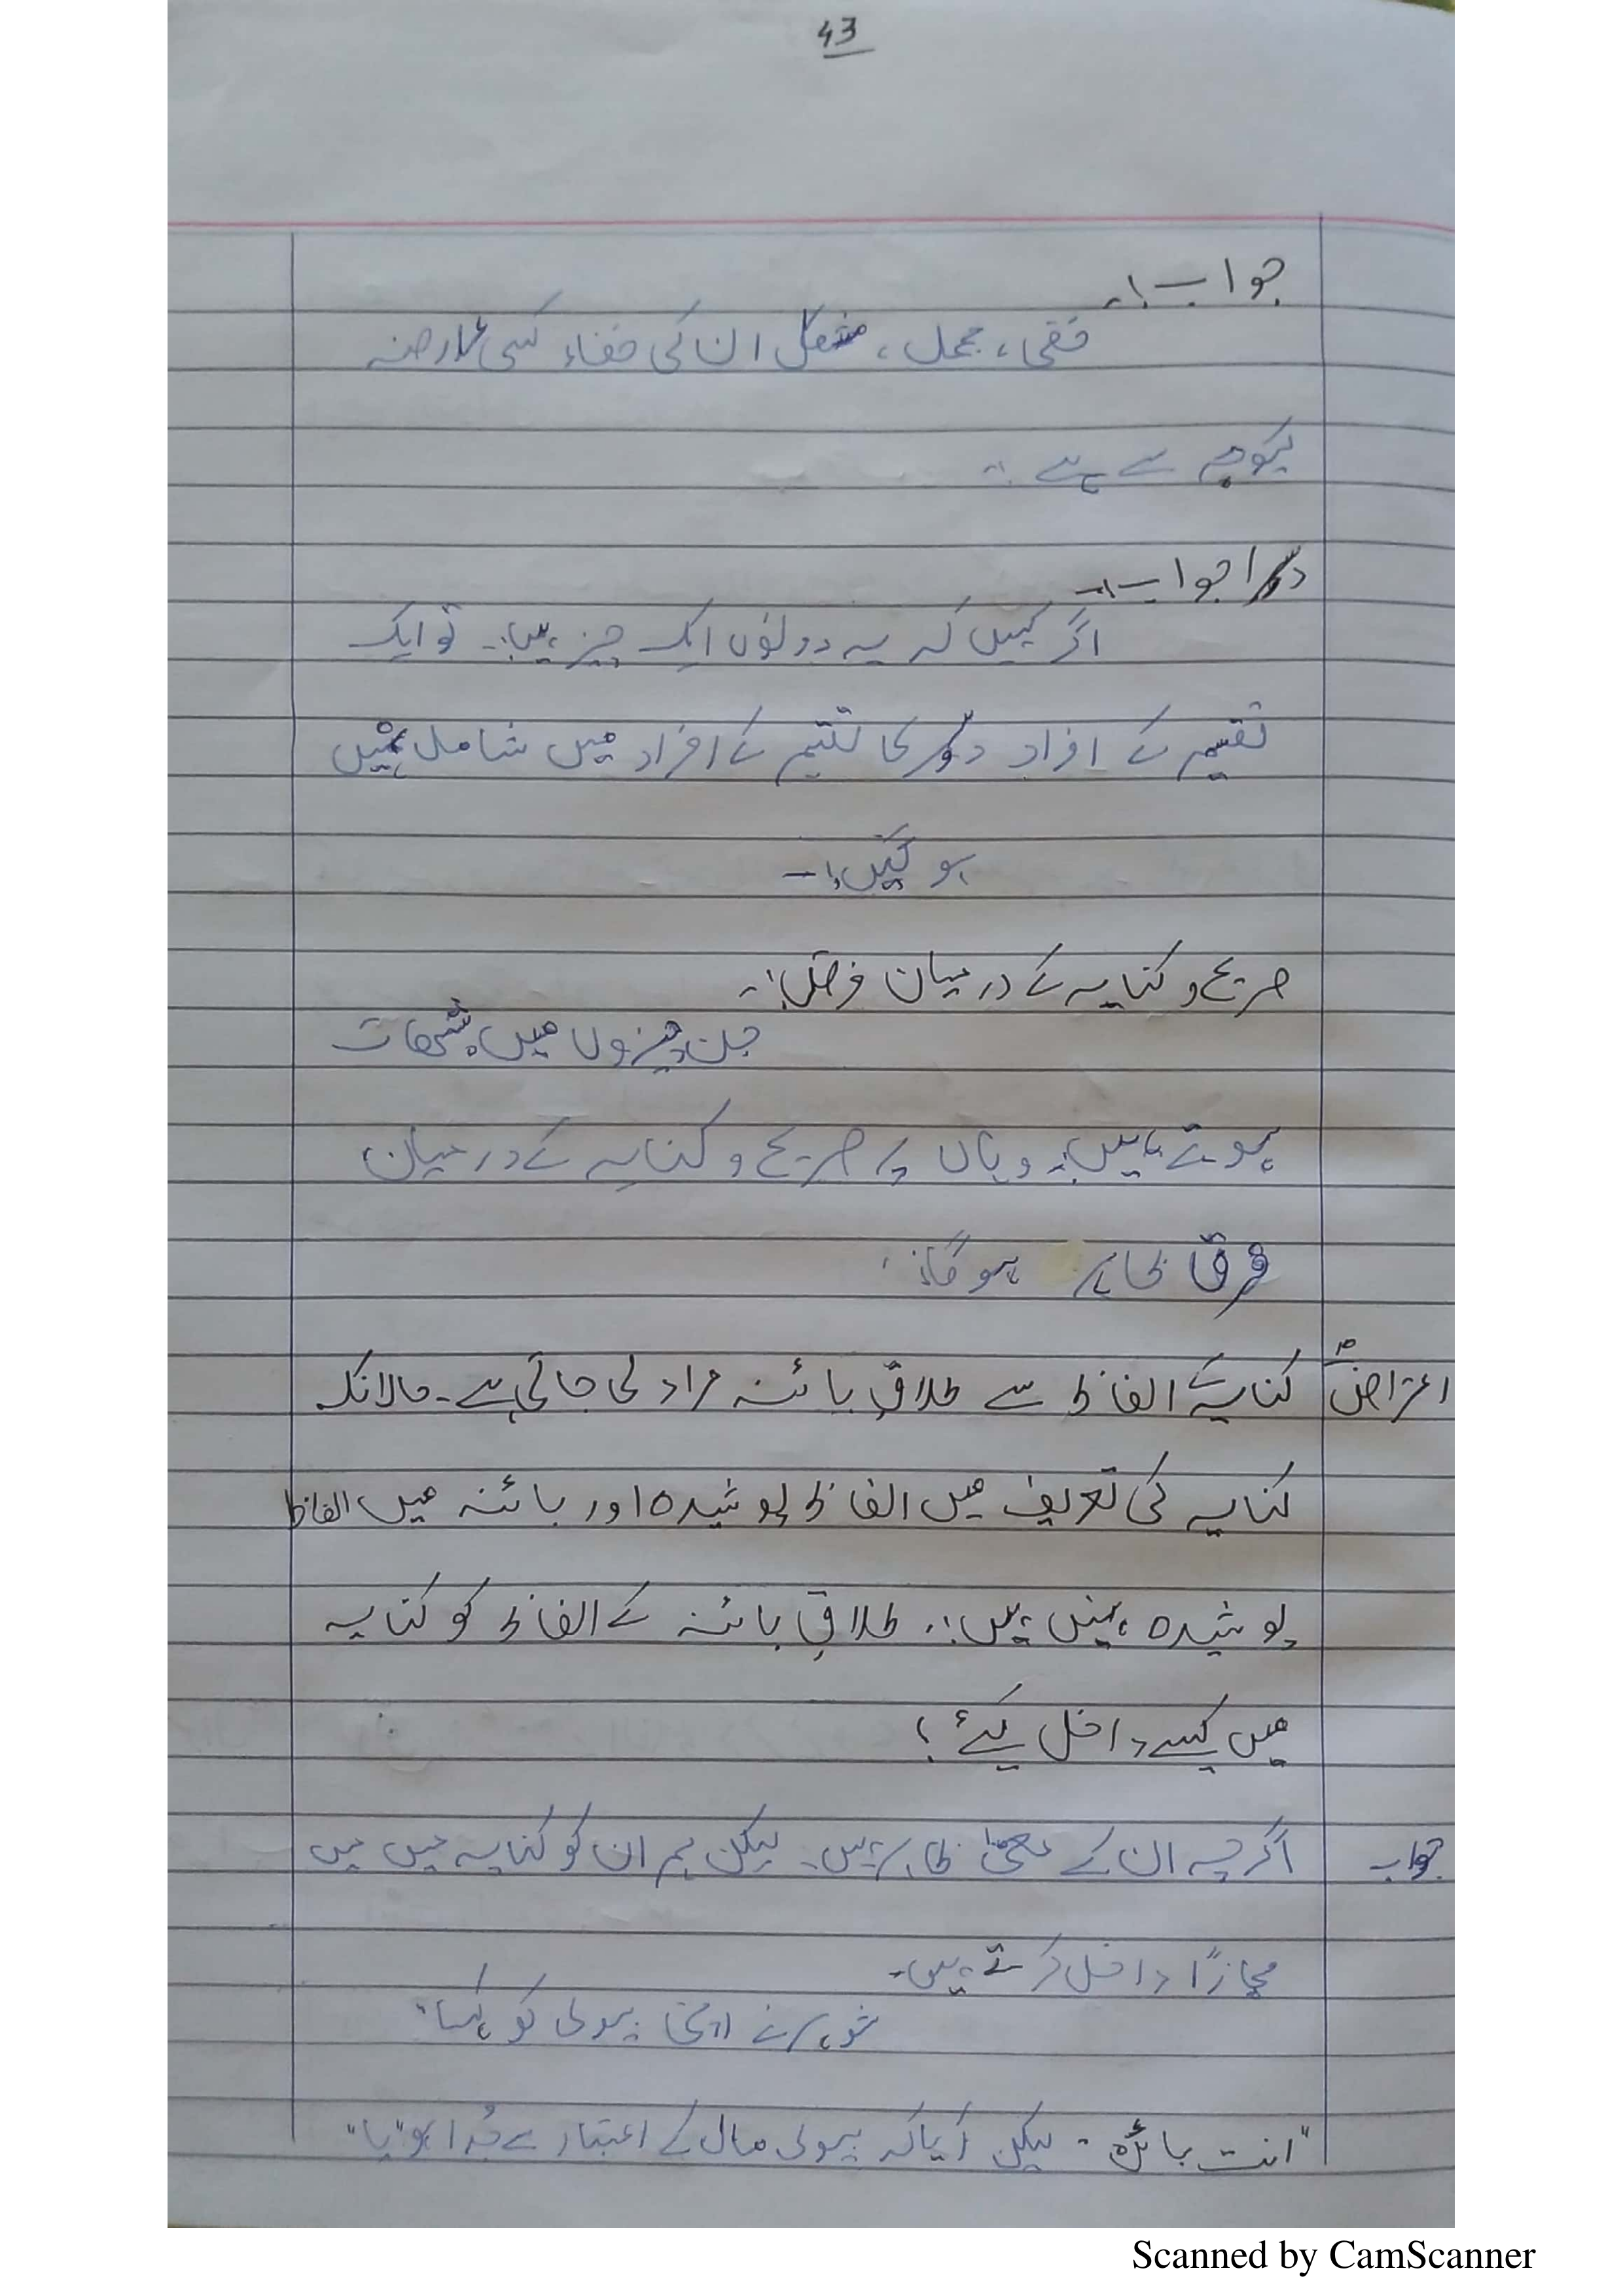 43
جواب:۔
خفی، مجمل، مشکل ان کی خفاء کسی عارضہ
کیوجہ سے ہے۔
دوسرا جواب:۔
اگر کہیں کہ یہ دونوں ایک چیز ہیں:۔ تو ایک
تقسیم کے افراد دوسر کا تقسیم کے افراد میں شامل نہیں
ہو گئیں:۔
صریح و کنایہ کے درمیان فرق:۔
جن چیزوں میں شبھات
ہوتے ہیں:۔ وہاں پر صریح و کنایہ کے درمیان
فرق ظاہر ہو گا:۔
اعتراض کنایہ کے الفاظ سے طلاقِ بائنہ مراد لی جاتی ہے۔ حالانکہ
کنایہ کی تعریف میں الفاظ پوشیدہ اور بائنہ میں الفاظ
پوشیدہ نہیں ہیں:۔ طلاقِ بائنہ کے الفاظ کو کنایہ
میں کیسے داخل کیئے؟
جواب اگرچہ ان کے معنیٰ ظاہر ہیں۔ لیکن ہم ان کو کنایہ میں میں
مجازًا داخل کرتے ہیں۔
شوہر نے اپنی بیوی کو کہا"
"انت بائنہ۔ لیکن آیا کہ بیوی مال کے اعتبار سے جُدا ہو "یا"
Scanned by CamScanner